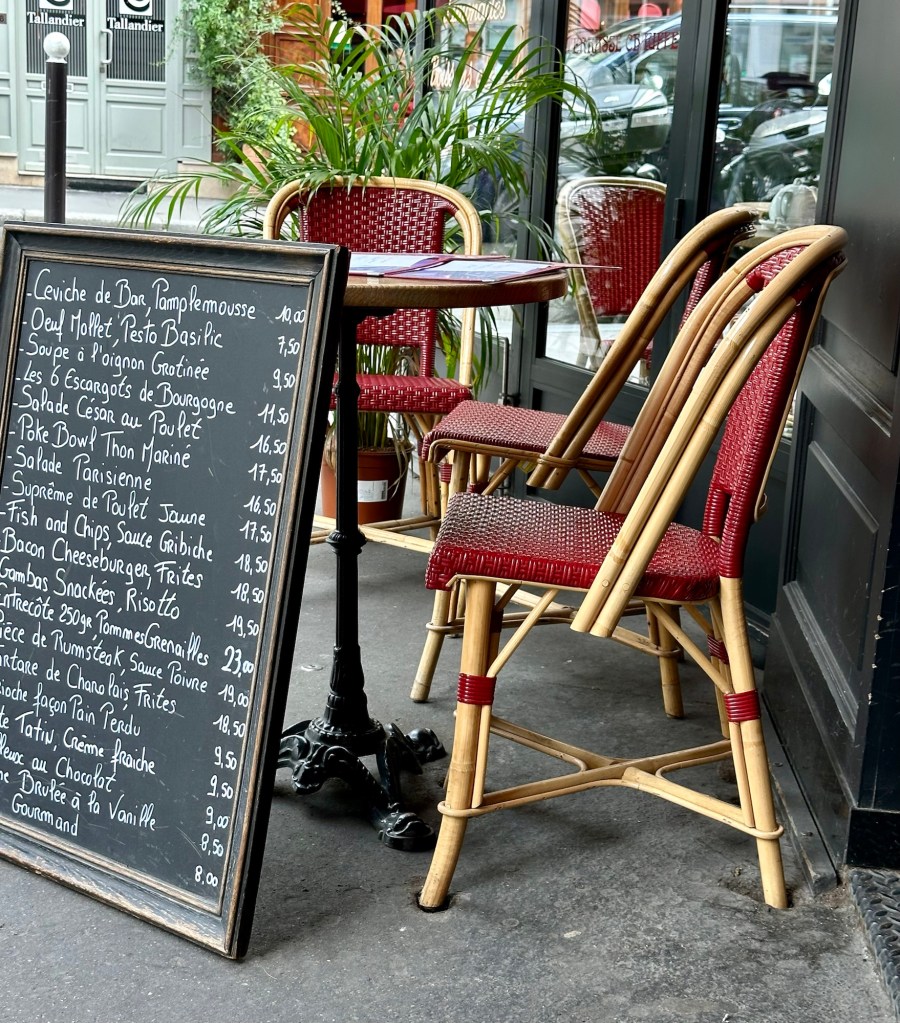 Tallandier
Tallandier
TERRASSE CHAUFFÉE
-Ceviche de Bar, Pamplemousse 10,00
-Oeuf Mollet, Pesto Basilic 7,50
-Soupe à l'oignon Gratinée 9,50
-Les 6 Escargots de Bourgogne 11,50
-Salade César au Poulet 16,50
-Poke Bowl Thon Mariné 17,50
-Salade Parisienne 16,50
Suprême de Poulet Jaune 17,50
-Fish and Chips, Sauce Gribiche 18,50
Bacon Cheeseburger, Frites 18,50
Gambas Snackées, Risotto 19,50
Entrecôte 250gr Pommes Grenailles 23,00
ièce de Rumsteak Sauce Poivre 19,00
artare de Charolais, Frites 18,50
ioche façon Pain Perdu 9,50
te Tatin, Crème fraiche 9,50
lleux au Chocolat 9,00
me Brulée à la Vanille 8,50
Gourmand 8,00